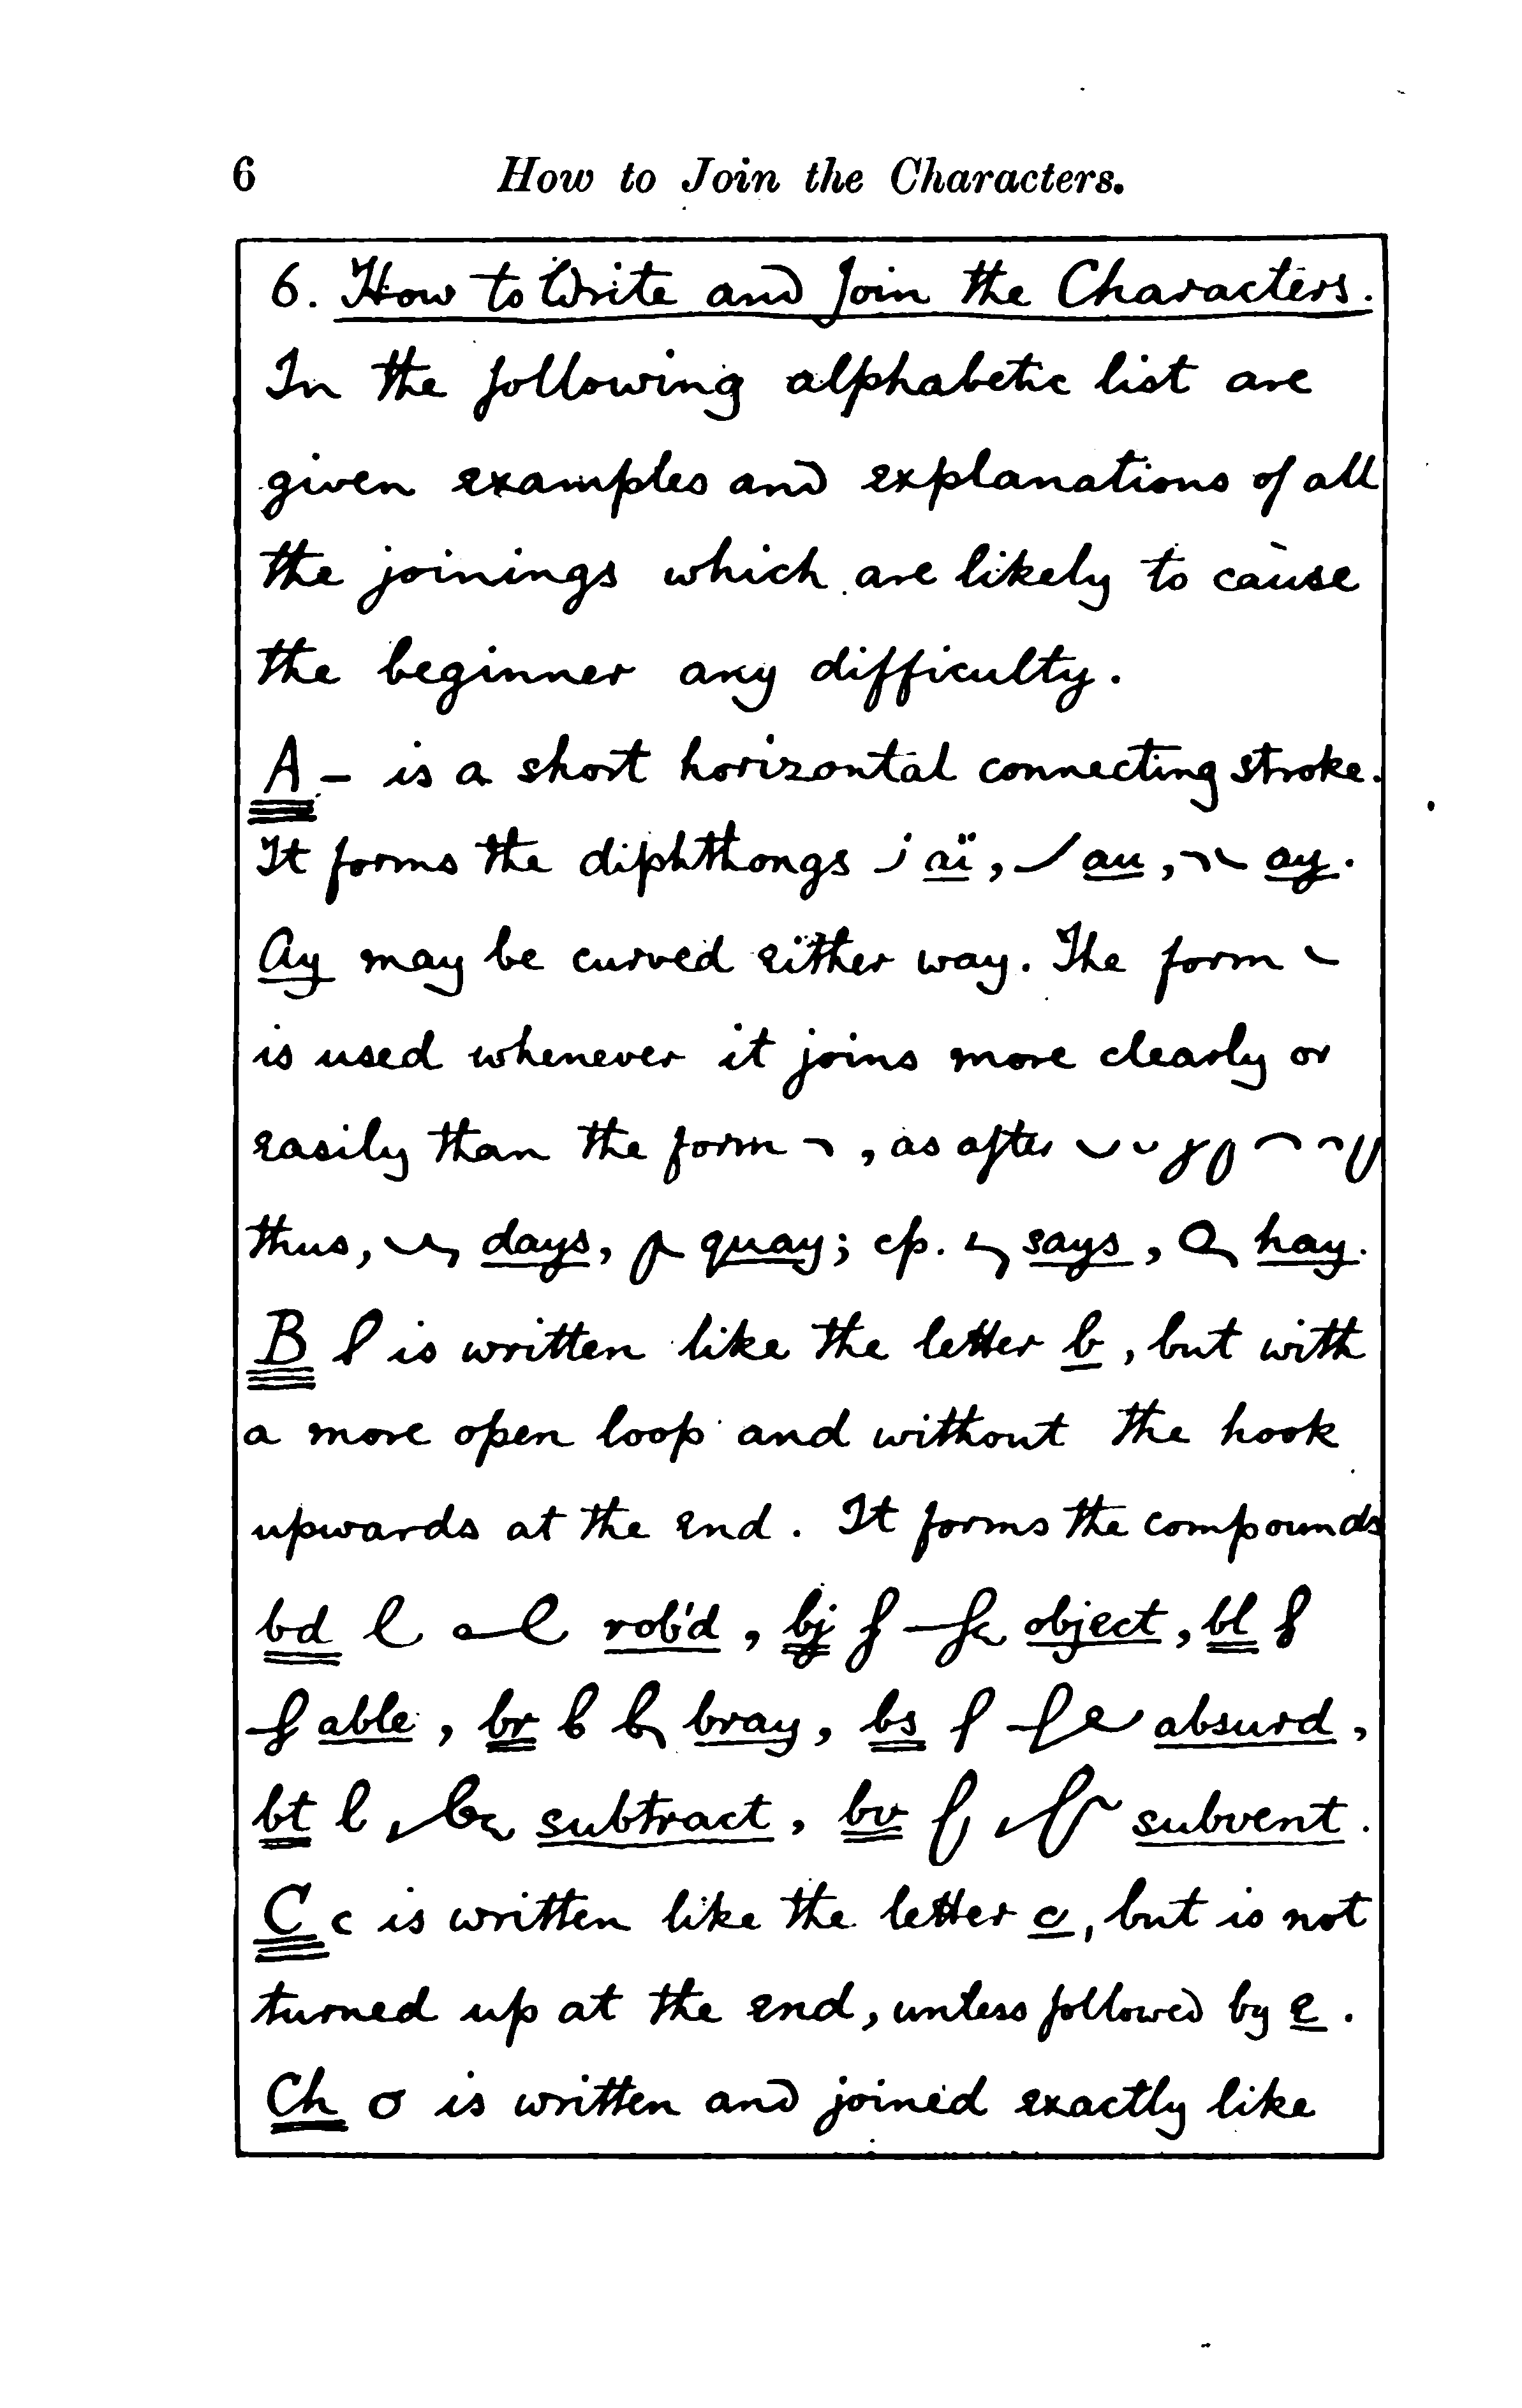 6 How to Join the Characters.
6. How to Write and Join the Characters.
In the following alphabetic list are
given examples and explanations of all
the joinings which are likely to cause
the beginner any difficulty.
A – is a short horizontal connecting stroke.
It forms the diphthongs aï, au, ay.
Ay may be curved either way. The form
is used whenever it joins more clearly or
easily than the form , as after
thus, days, quay; cp. says, hay.
B is written like the letter b, but with
a more open loop and without the hook
upwards at the end. It forms the compounds
bd rob'd, bj object, bl
able, br bray, bs absurd,
bt subtract, bv subvent.
C c is written like the letter c, but is not
turned up at the end, unless followed by e.
Ch σ is written and joined exactly like